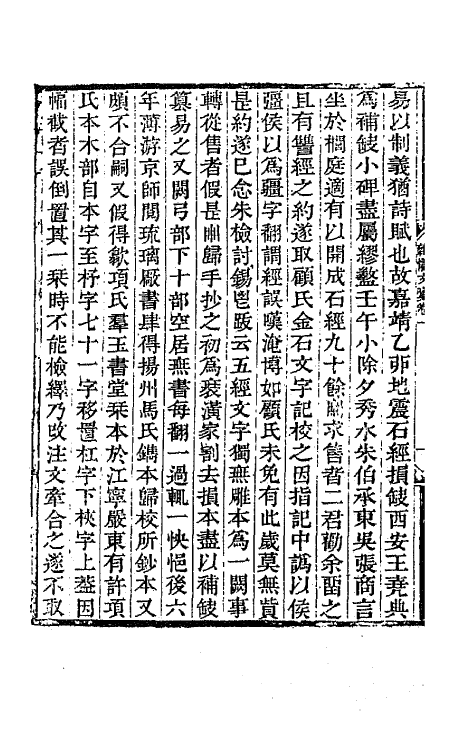 易以制義猶詩賦也故嘉靖乙卯地震石經損缺西安王堯典
為補缺小碑盡屬繆盭壬午小除夕秀水朱伯承東吳張商言
坐於櫚庭適有以開成石經九十餘冊求售者二君勸余畱之
且有讐經之約遂取顧氏金石文字記校之因指記中譌以侯
彊侯以為疆字翻謂經誤嘆淹博如顧氏未免有此歲莫無貲
是約遂已念朱檢討錫鬯跋云五經文字獨無雕本為一闕事
轉從售者假是冊歸手抄之初為裝潢家割去損本盡以補缺
簒易之又闕弓部下十部空居燕書每翻一過輒一怏悒後六
年薄游京師閱琉璃厰書肆得揚州馬氏鐫本歸校所鈔本又
頗不合嗣又假得歙項氏羣玉書堂栞本於江寧嚴東有許項
氏本木部自本字至杼字七十一字移置杠字下梜字上葢因
幅截者誤倒置其一栞時不能檢繹乃改注文牽合之遂不取